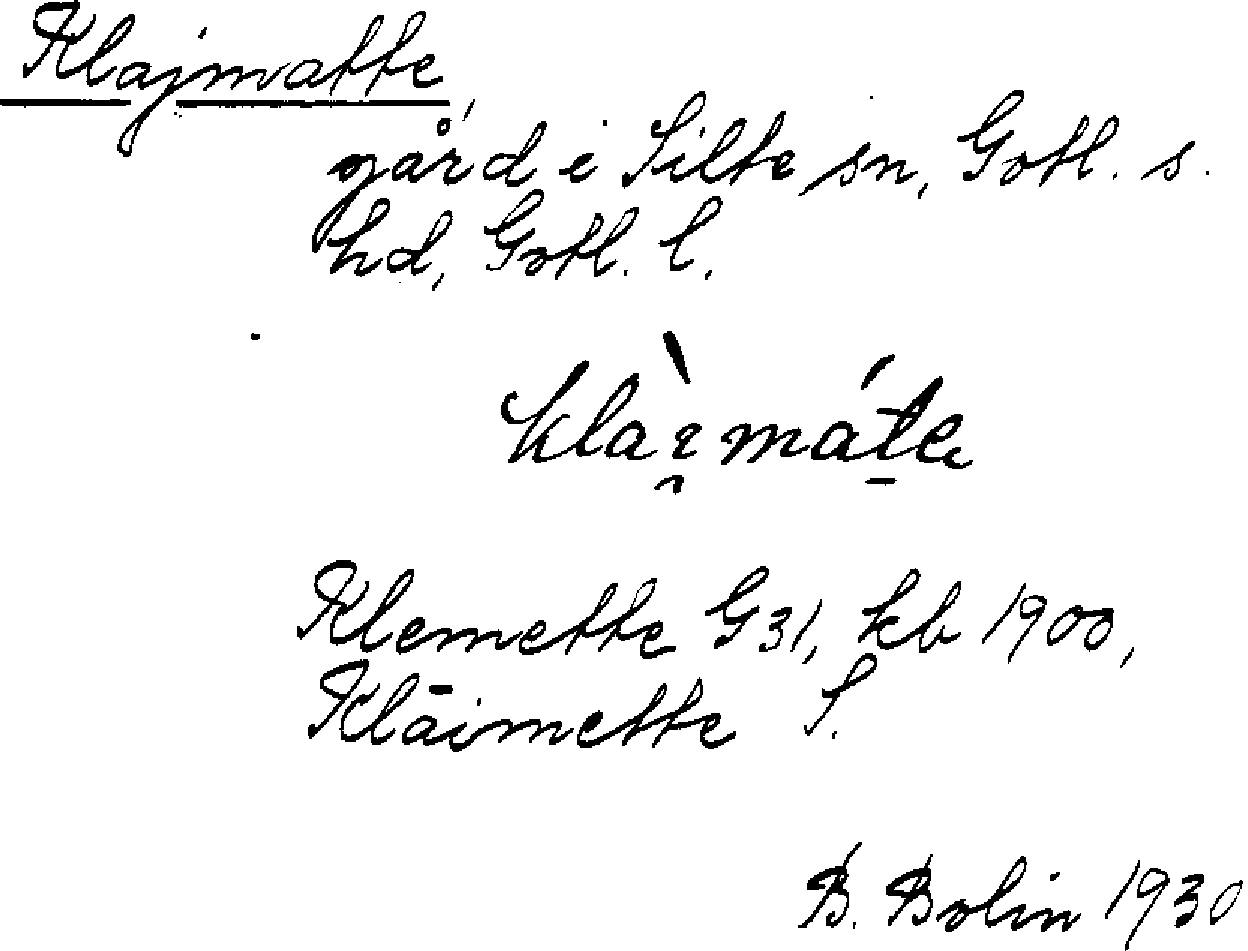 Klajmatte
gård i Silte sn, Gotl. s.
hd, Gotl. l.
Klemette G31, kb 1900,
Klāimette S.
B. Bolin 1930